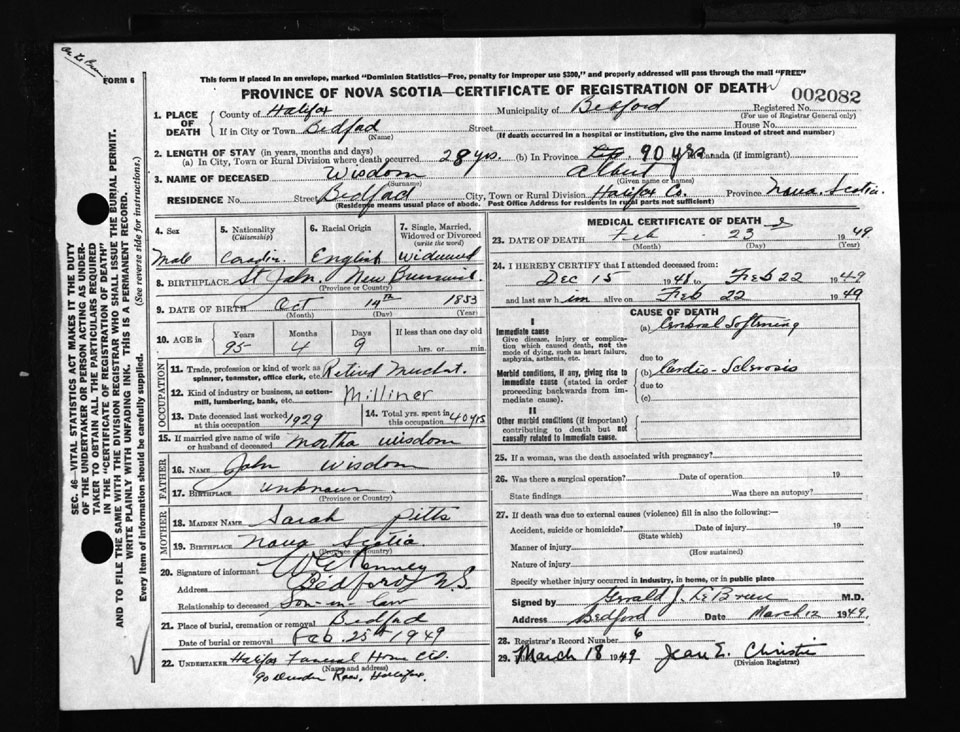 FORM 6
This form if placed in an envelope, marked "Dominion Statistics—Free, penalty for improper use $300," and properly addressed will pass through the mail "FREE"
PROVINCE OF NOVA SCOTIA—CERTIFICATE OF REGISTRATION OF DEATH
002082
1. PLACE OF DEATH
County of Halifax Municipality of Bedford Registered No.
(For use of Registrar General only)
If in City or Town Bedford Street House No.
(Name) (If death occurred in a hospital or institution, give the name instead of street and number)
2. LENGTH OF STAY (in years, months and days)
(a) In City, Town or Rural Division where death occurred 28 yrs. (b) In Province 90 yrs Canada (if immigrant)
3. NAME OF DECEASED Wisdom Albert
(Surname) (Given name or names)
RESIDENCE No. Street Bedford City, Town or Rural Division Halifax Co. Province Nova Scotia
(Residence means usual place of abode. Post Office Address for residents in rural parts not sufficient)
4. Sex
Male
5. Nationality
(Citizenship)
Canadian
6. Racial Origin
English
7. Single, Married, Widowed or Divorced
(write the word)
Widowed
8. BIRTHPLACE St John New Brunswick
(Province or Country)
9. DATE OF BIRTH Oct 14th 1853
(Month) (Day) (Year)
10. AGE in Years Months Days If less than one day old
95 4 9 hrs. or min.
OCCUPATION
11. Trade, profession or kind of work as spinner, teamster, office clerk, etc. Retired Merchant
12. Kind of industry or business, as cotton-mill, lumbering, bank, etc. Milliner
13. Date deceased last worked at this occupation 1929
14. Total yrs. spent in this occupation 40 yrs
15. If married give name of wife or husband of deceased Martha Wisdom
FATHER
16. NAME John Wisdom
17. BIRTHPLACE unknown
(Province or Country)
MOTHER
18. MAIDEN NAME Sarah Pitts
19. BIRTHPLACE Nova Scotia
(Province or Country)
20. Signature of informant W E Kenney
Address Bedford N.S.
Relationship to deceased Son-in-law
21. Place of burial, cremation or removal Bedford
Date of burial or removal Feb. 25th 1949
22. UNDERTAKER Halifax Funeral Home
(Name and address)
90 Row, Halifax.
MEDICAL CERTIFICATE OF DEATH
23. DATE OF DEATH Feb 23 1949
(Month) (Day) (Year)
24. I HEREBY CERTIFY that I attended deceased from:
Dec 15 1948 to Feb 22 1949
and last saw him alive on Feb 22 1949
CAUSE OF DEATH
I
Immediate cause
Give disease, injury or complication which caused death, not the mode of dying, such as heart failure, asphyxia, asthenia, etc.
(a) Cerebral Softening
due to
Morbid conditions, if any, giving rise to immediate cause (stated in order proceeding backwards from immediate cause).
(b) Cardio-Sclerosis
due to
(c)
II
Other morbid conditions (if important) contributing to death but not causally related to immediate cause.
25. If a woman, was the death associated with pregnancy?
26. Was there a surgical operation? Date of operation 19
State findings Was there an autopsy?
27. If death was due to external causes (violence) fill in also the following:—
Accident, suicide or homicide? Date of injury 19
(State which)
Manner of injury
(How sustained)
Nature of injury
Specify whether injury occurred in industry, in home, or in public place
Signed by Gerald J. LeBrun M.D.
Address Bedford Date March 12 1949.
28. Registrar's Record Number 6
29. March 18 1949 Jean E. Christie
(Division Registrar)
SEC. 46—VITAL STATISTICS ACT MAKES IT THE DUTY
OF THE UNDERTAKER OR PERSON ACTING AS UNDER-
TAKER TO OBTAIN ALL THE PARTICULARS REQUIRED
IN THE "CERTIFICATE OF REGISTRATION OF DEATH"
AND TO FILE THE SAME WITH THE DIVISION REGISTRAR WHO SHALL ISSUE THE BURIAL PERMIT.
WRITE PLAINLY WITH UNFADING INK. THIS IS A PERMANENT RECORD.
Every item of information should be carefully supplied. (See reverse side for instructions.)